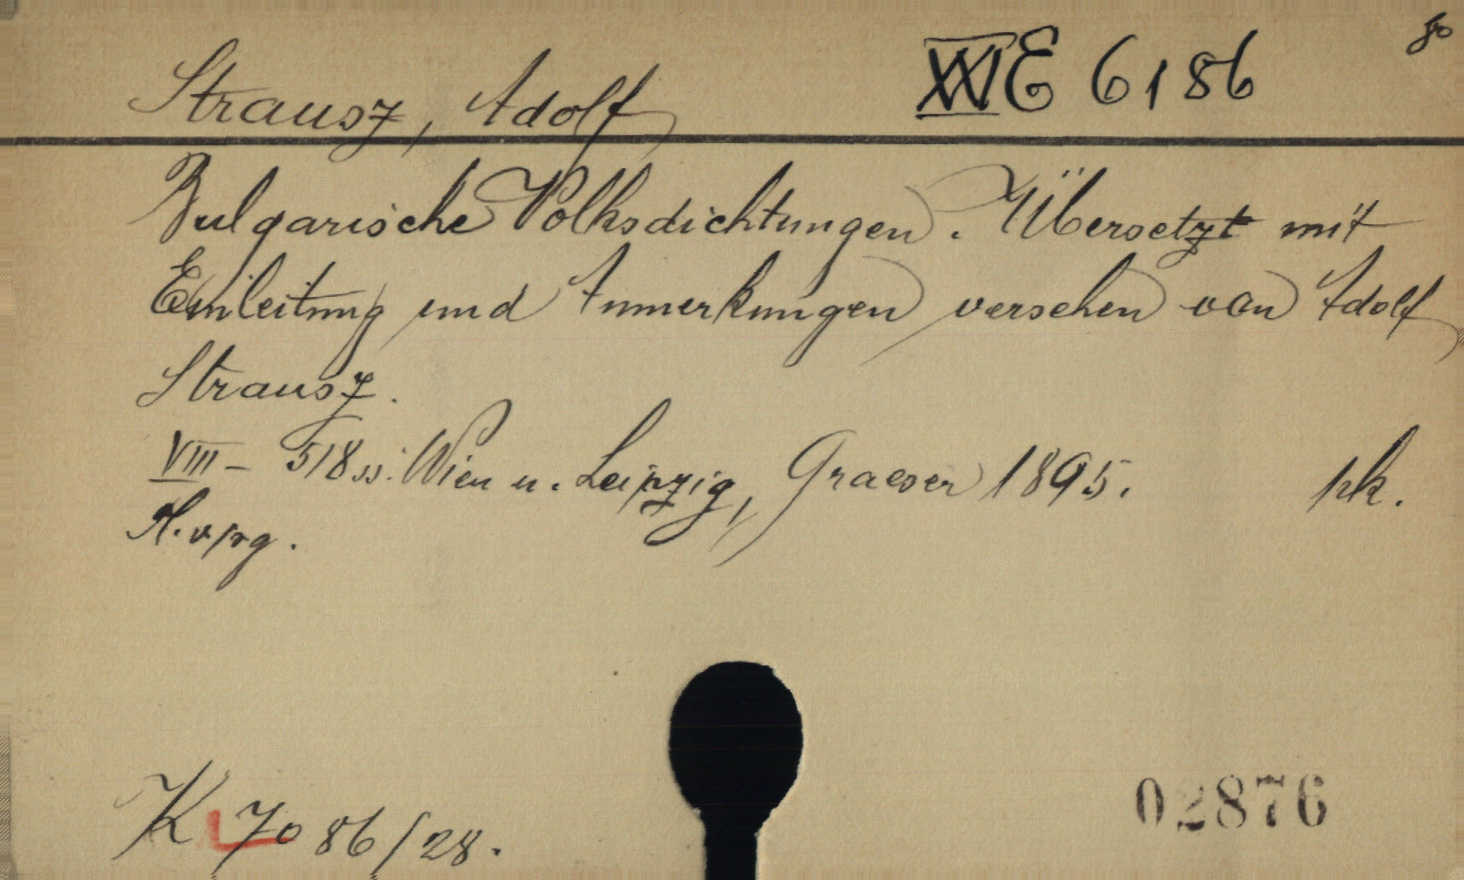 8°
XVI E 6186
Strausz, Adolf
Bulgarische Volksdichtungen. Übersetzt mit
Einleitung und Anmerkungen versehen von Adolf
Strausz.
VIII – 518 ss. Wien u. Leipzig, Graeser 1895. pk.
K 7086/28.
02876